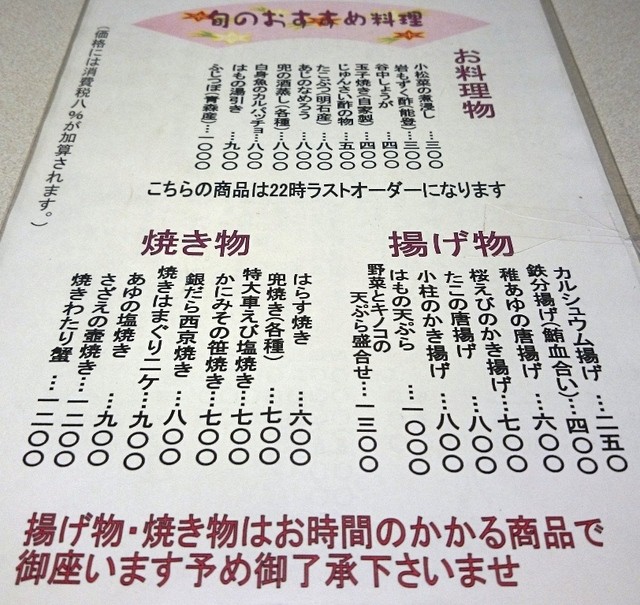 旬のおすすめ料理
お料理物
小松菜の煮浸し…三〇〇
岩もずく酢(能登)…三〇〇
谷中しょうが…四〇〇
玉子焼き(自家製)…四〇〇
じゅんさい酢の物…五〇〇
たこぶつ(明石産)…八〇〇
あじのなめろう…八〇〇
兜の酒蒸し(各種)…八〇〇
白身魚のカルパッチョ…八〇〇
はもの湯引き…九〇〇
ふじつぼ(青森産)…一〇〇〇
(価格には消費税八%が加算されます。)
こちらの商品は22時ラストオーダーになります
揚げ物
カルシュウム揚げ…二五〇
鉄分揚げ(鮪血合い)…四〇〇
稚あゆの唐揚げ…六〇〇
桜えびのかき揚げ…七〇〇
たこの唐揚げ…八〇〇
小柱のかき揚げ…八〇〇
はもの天ぷら…一〇〇〇
野菜とキノコの
天ぷら盛合せ…一三〇〇
焼き物
はらす焼き…六〇〇
兜焼き(各種)…七〇〇
特大車えび塩焼き…七〇〇
かにみその笹焼き…七〇〇
銀だら西京焼き…八〇〇
焼きはまぐり二ケ…九〇〇
あゆの塩焼き…九〇〇
さざえの壷焼き…九〇〇
焼きわたり蟹…一二〇〇
揚げ物・焼き物はお時間のかかる商品で
御座います予め御了承下さいませ